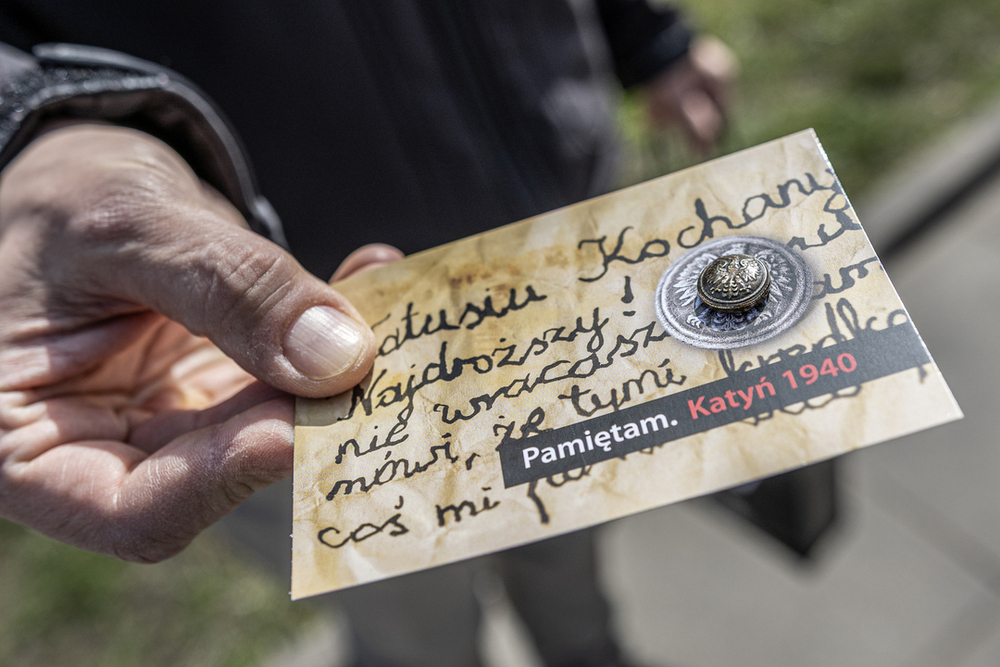 Tatusiu Kochany
Najdroższy!
nie wracasz
mówi, że tymi
coś mi
Pamiętam. Katyń 1940